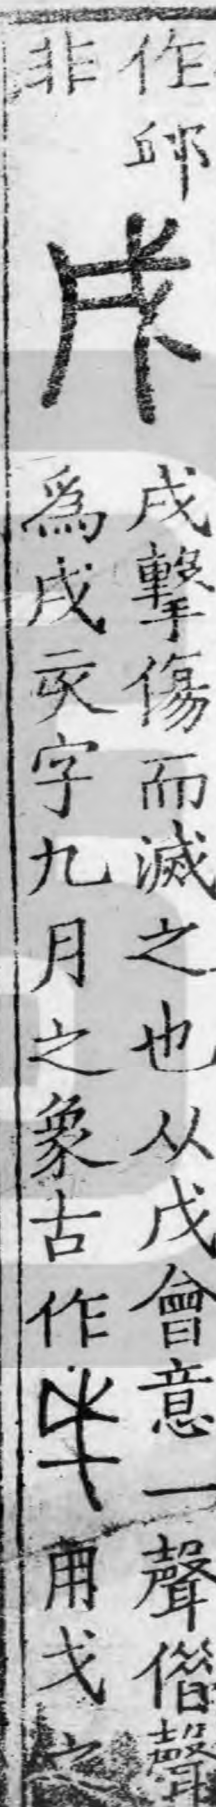 作邱
非
戌擊傷而滅之也从戊會意一聲偕聲
為戌亥字九月之象古作用戈之